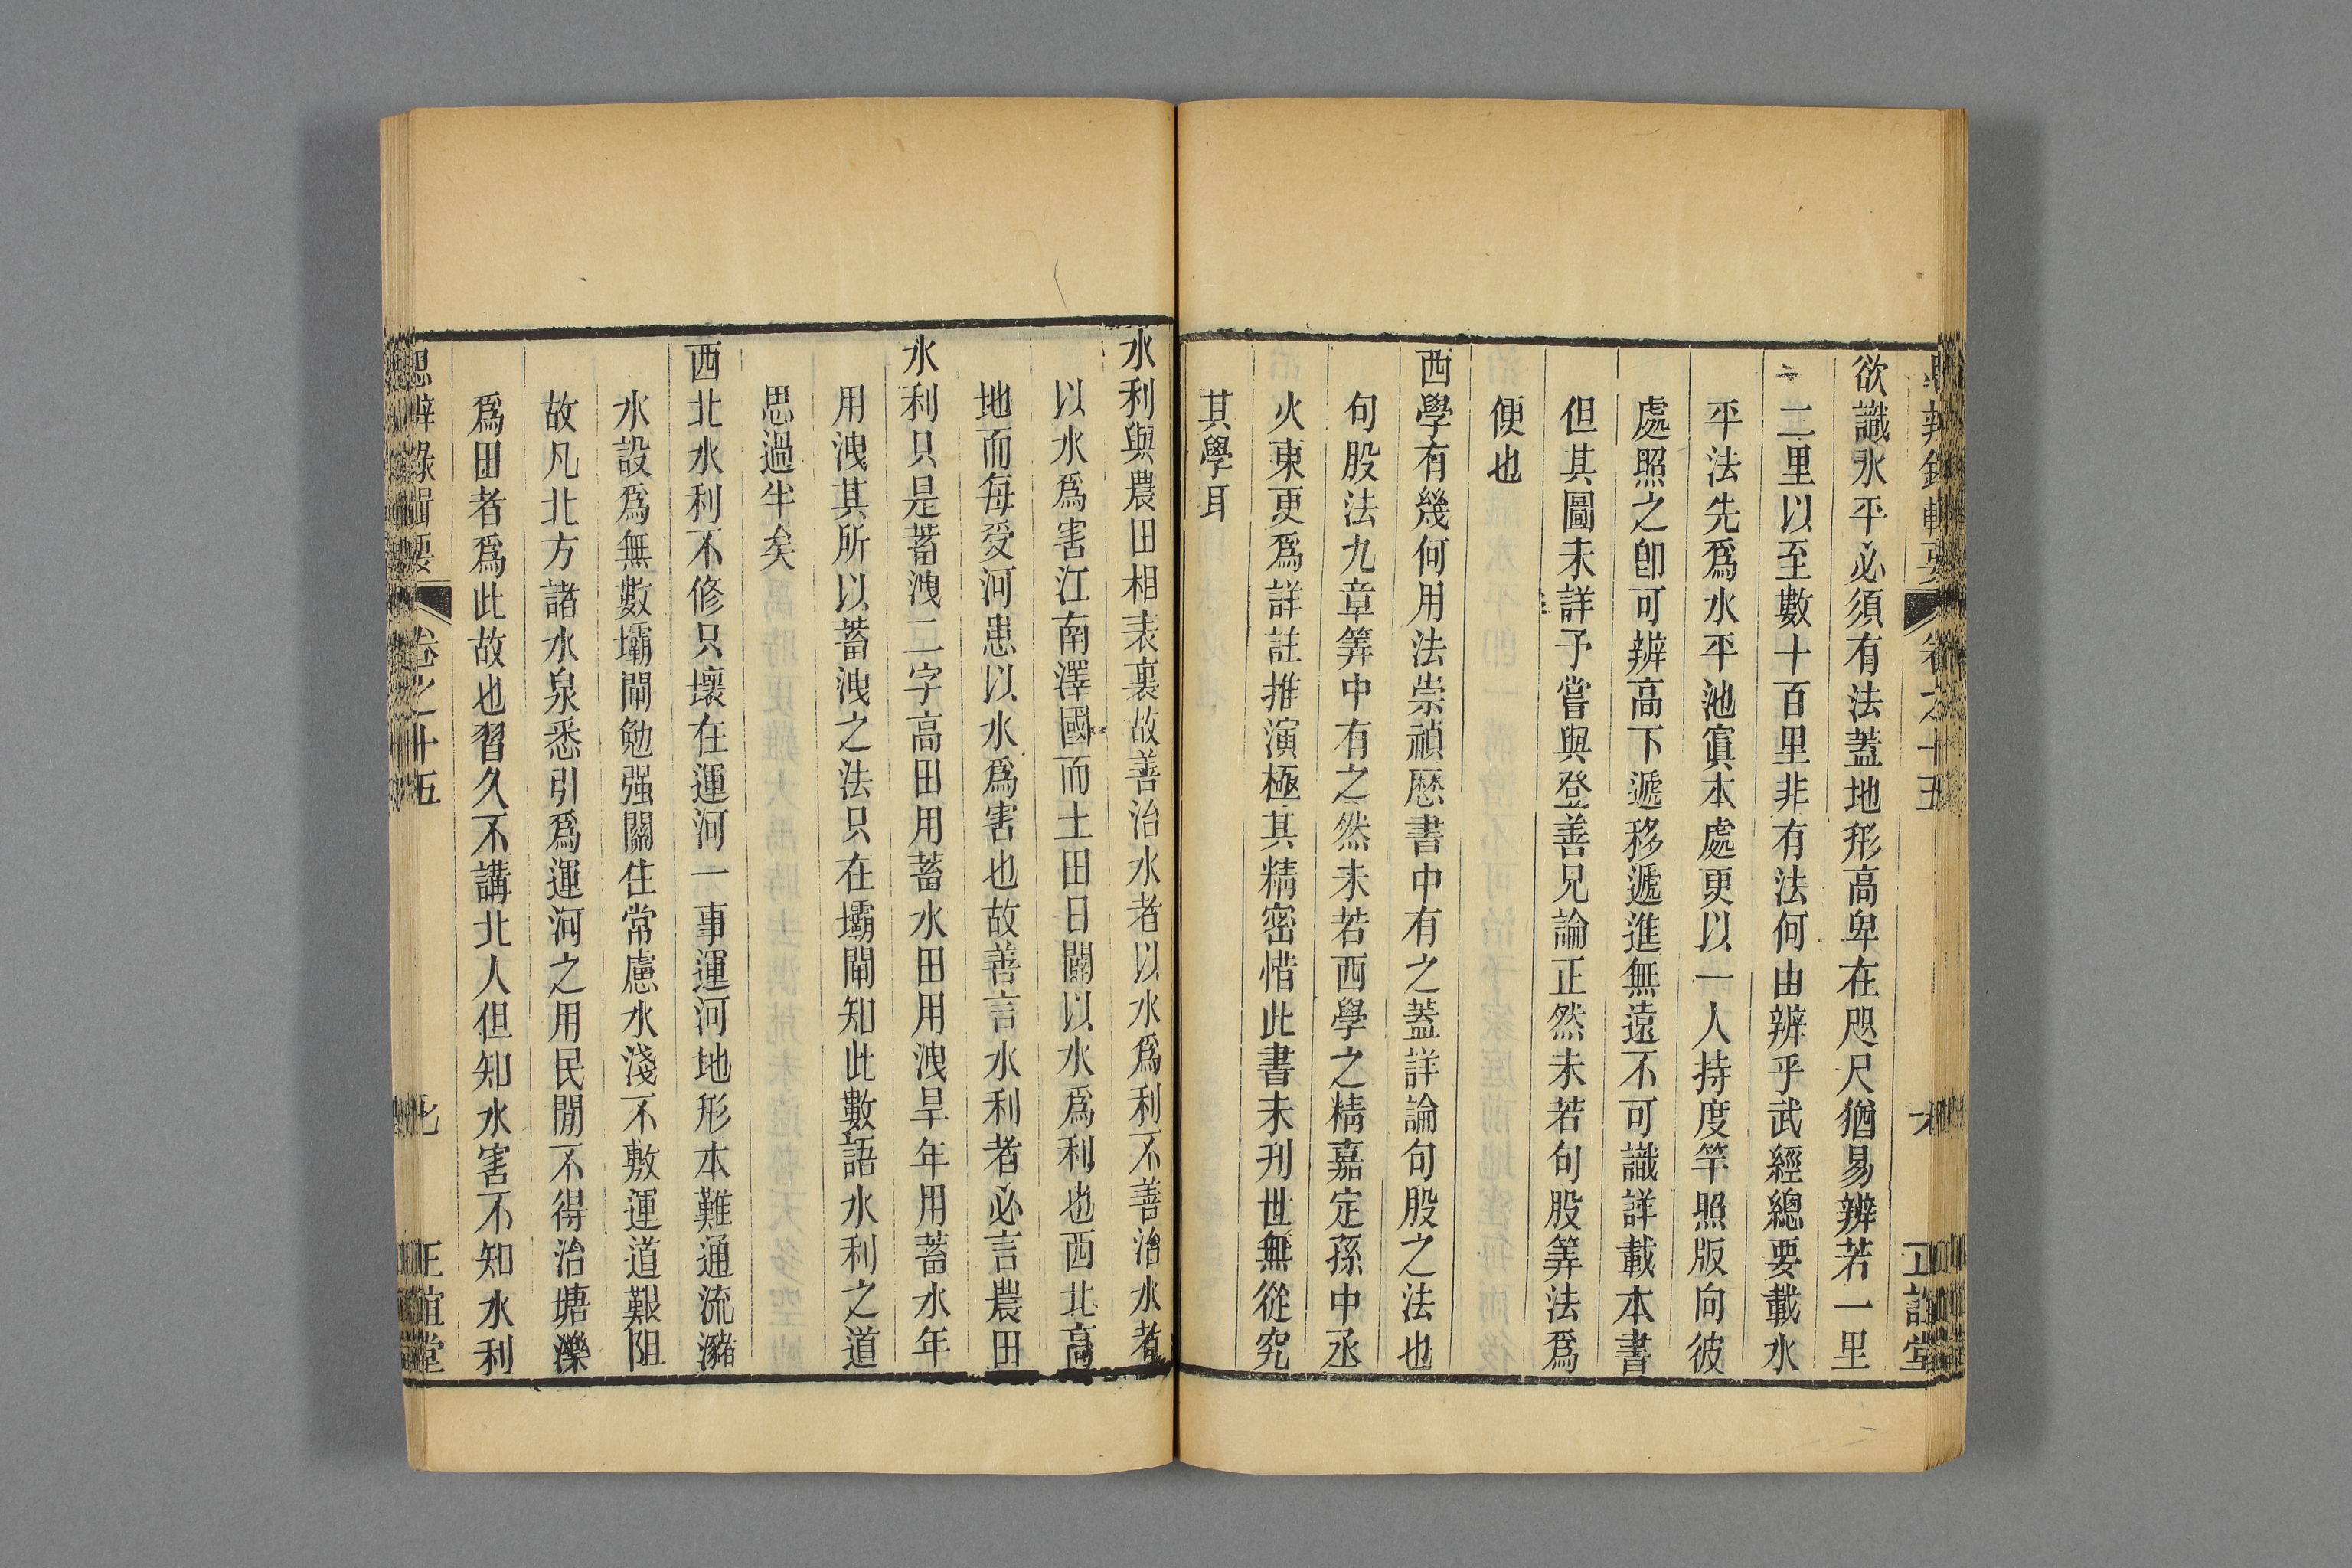 欲識水平必須有法蓋地形高卑在咫尺猶易辨若一里
二里以至數十百里非有法何由辨乎武經總要載水
平法先爲水平池寘本處更以一人持度竿照版向彼
處照之卽可辨高下遞移遞進無遠不可識詳載本書
但其圖未詳予嘗與登善兄論正然未若句股筭法爲
便也
西學有幾何用法崇禎厯書中有之蓋詳論句股之法也
句股法九章筭中有之然未若西學之精嘉定孫中丞
火東更爲詳註推演極其精密惜此書未刋世無從究
其學耳
水利與農田相表裏故善治水者以水爲利不善治水者
以水爲害江南澤國而土田日闢以水爲利也西北高
地而每受河患以水爲害也故善言水利者必言農田
水利只是蓄洩二字高田用蓄水田用洩旱年用蓄水年
用洩其所以蓄洩之法只在壩閘知此數語水利之道
思過半矣
西北水利不修只壞在運河一事運河地形本難通流瀦
水設爲無數壩閘勉强關住常慮水淺不敷運道艱阻
故凡北方諸水泉悉引爲運河之用民間不得治塘濼
爲田者爲此故也習久不講北人但知水害不知水利
思辨錄輯要
卷之十五
正誼堂